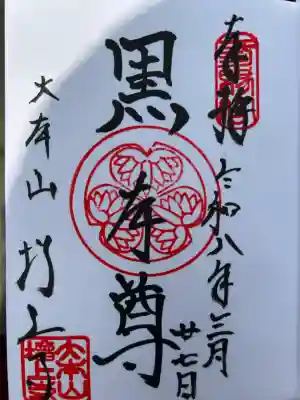 奉拝
令和八年三月
廿七日
黒本尊
大本山 増上寺
大本山
増上寺